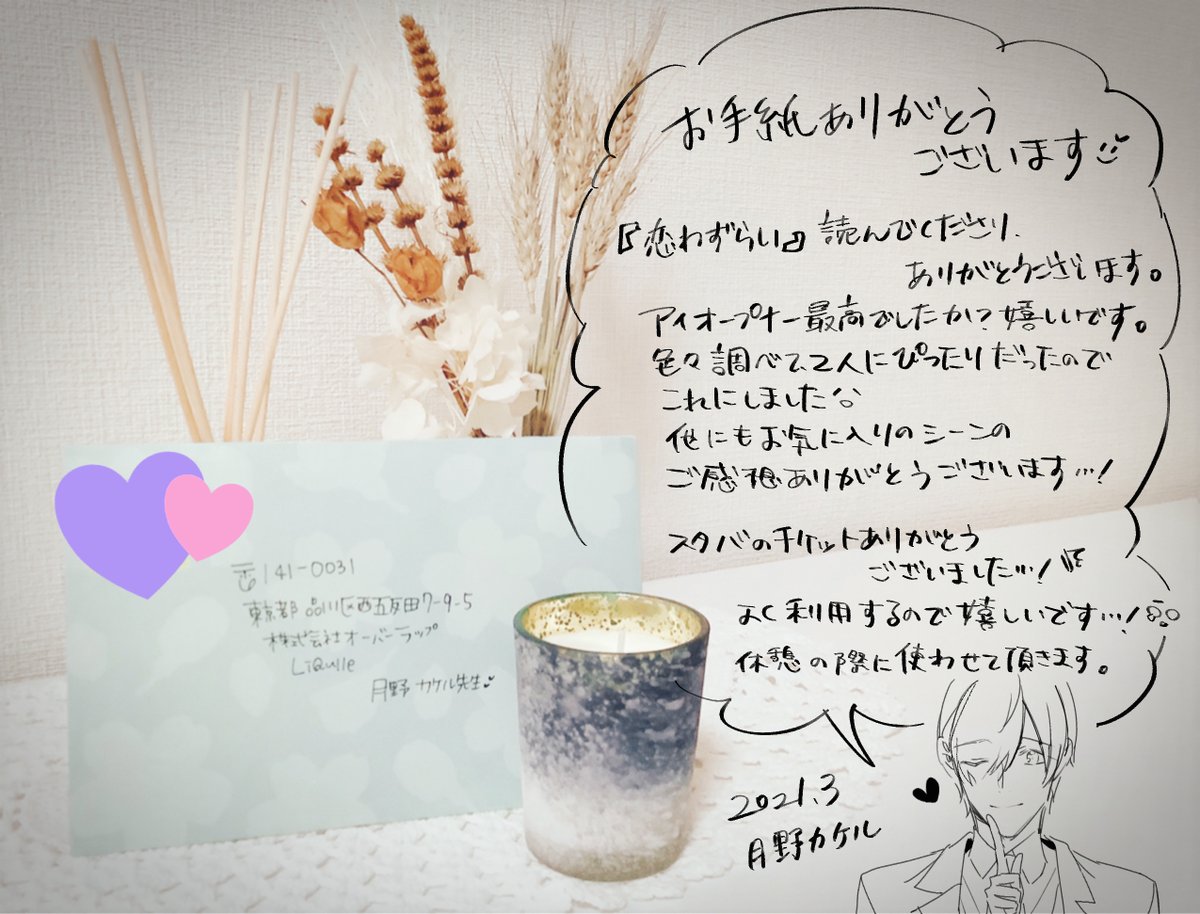 お手紙ありがとう
ございます
『恋わずらい』読んでくださり、
ありがとうございます。
アイオープナー最高でしたか?嬉しいです。
色々調べて、2人にぴったりだったので
これにしました
他にもお気に入りのシーンの
ご感想ありがとうございます…!
スタバのチケットありがとう
ございました…!
よく利用するので嬉しいです…!
休憩の際に使わせて頂きます。
2021.3
月野カケル
〒141-0031
東京都品川区西五反田7-9-5
株式会社オーバーラップ
LiQulle
月野カケル先生